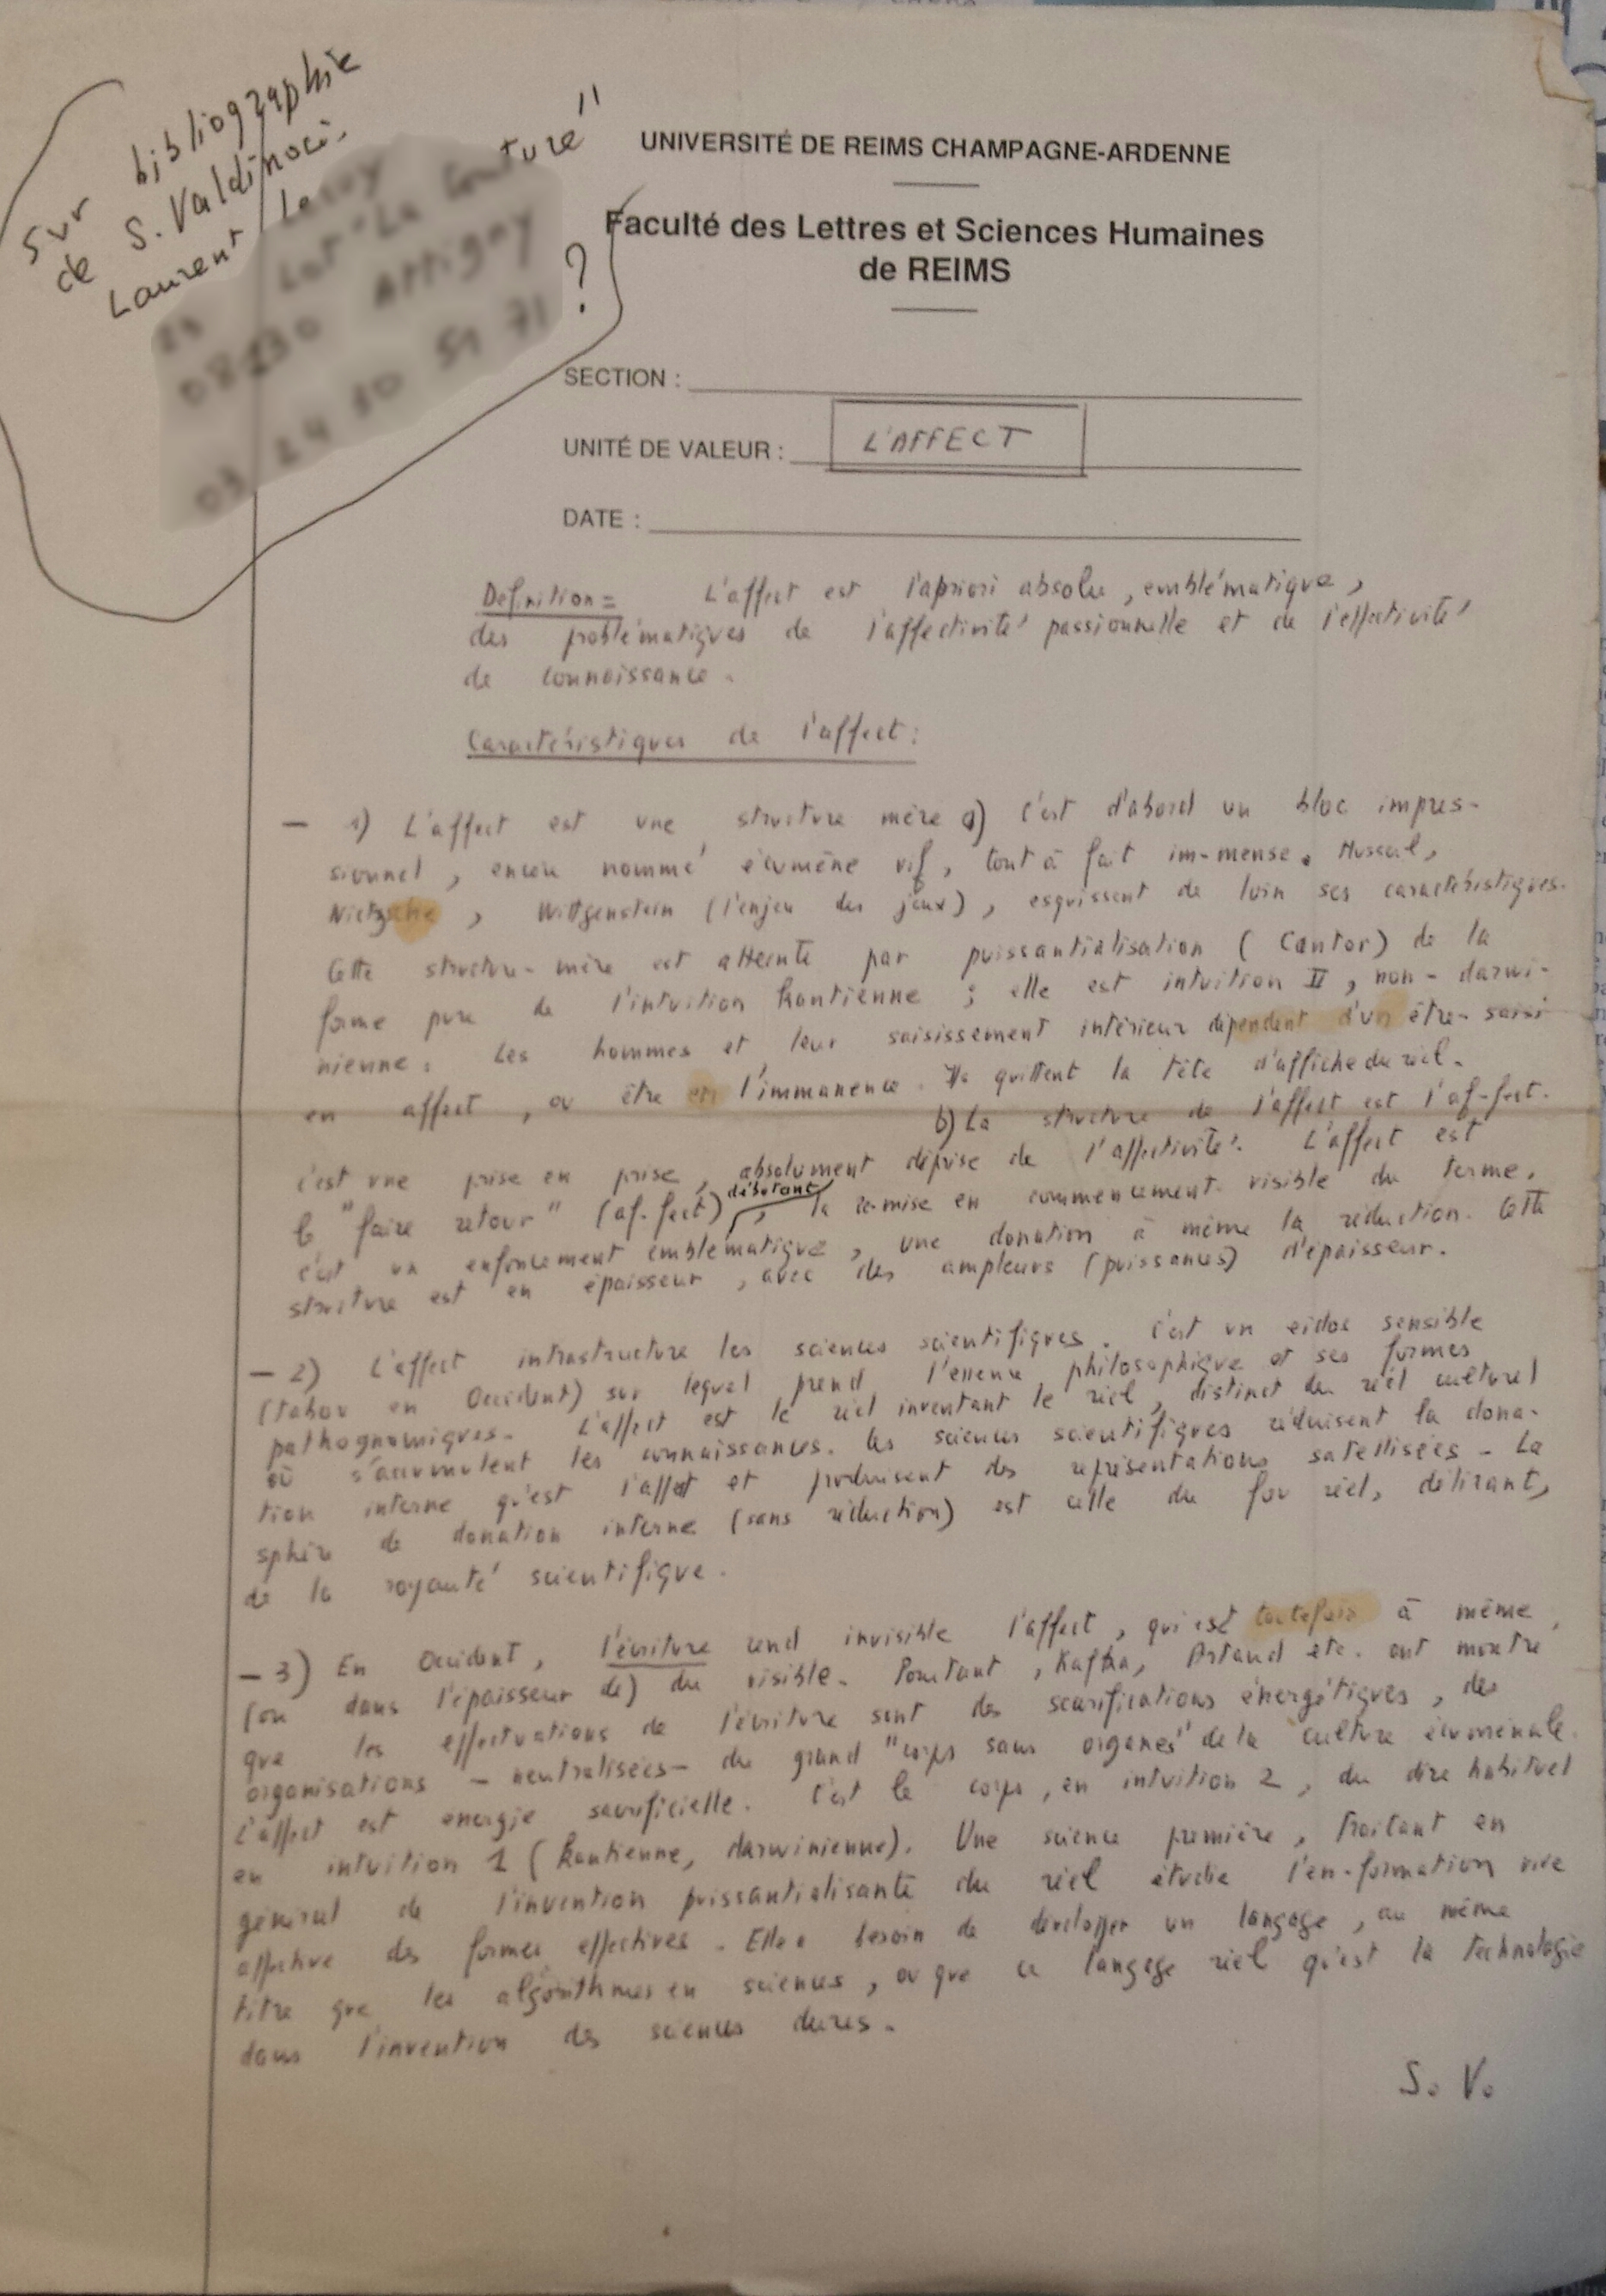 Sur bibliographie
de S. Valdinoci.
Laurent
?
UNIVERSITÉ DE REIMS CHAMPAGNE-ARDENNE
Faculté des Lettres et Sciences Humaines
de REIMS
SECTION :
UNITÉ DE VALEUR : L'AFFECT
DATE :
Definition = L'affect est l'apriori absolu, emblématique,
des problématiques de l'affectivité passionnelle et de l'effectivité
de connaissance.
Caractéristiques de l'affect :
– 1) L'affect est une structure mère a) C'est d'abord un bloc impres-
sionnel, encore nommé écumène vif, tout à fait im-mense. Husserl,
Nietzsche, Wittgenstein (l'enjeu des jeux), esquissent de loin ses caractéristiques.
Cette structure-mère est atteinte par puissantialisation (Cantor) de la
forme pure de l'intuition kantienne ; elle est intuition II, non-darwi-
nienne. Les hommes et leur saisissement intérieur dépendent d'un être-saisi
en affect, ou être en l'immanence. Ils quittent la tête d'affiche du réel.
b) La structure de l'affect est l'af-fect.
C'est une prise en prise, absolument déprise de l'affectivité. L'affect est
le "faire retour" (af-fect) débutant, la re-mise en commencement visible du terme.
C'est un enfoncement emblématique, une donation à même la réduction. Cette
structure est en épaisseur, avec des ampleurs (puissances) d'épaisseur.
– 2) L'affect intrastructure les sciences scientifiques. C'est un eidos sensible
(tabou en Occident) sur lequel prend l'essence philosophique et ses formes
pathognomiques. L'affect est le réel inventant le réel, distinct du réel culturel
où s'accumulent les connaissances. Les sciences scientifiques réduisent la dona-
tion interne qu'est l'affect et produisent des représentations satellisées – La
sphère de donation interne (sans réduction) est celle du fou réel, délirant,
de la royauté scientifique.
– 3) En Occident, l'écriture rend invisible l'affect, qui est toutefois à même
(ou dans l'épaisseur de) du visible. Pourtant, Kafka, Artaud etc. ont montré
que les effectuations de l'écriture sont des scarifications énergétiques, des
organisations – neutralisées – du grand "corps sans organes" de la culture écuménale.
L'affect est énergie sacrificielle. C'est le corps, en intuition 2, du dire habituel
en intuition 1 (kantienne, darwinienne). Une science première, traitant en
général de l'invention puissantialisante du réel étudie l'en-formation vive
affective des formes effectives. Elle a besoin de développer un langage, au même
titre que les algorithmes en sciences, ou que ce langage réel qu'est la technologie
dans l'invention des sciences dures.
S. V.